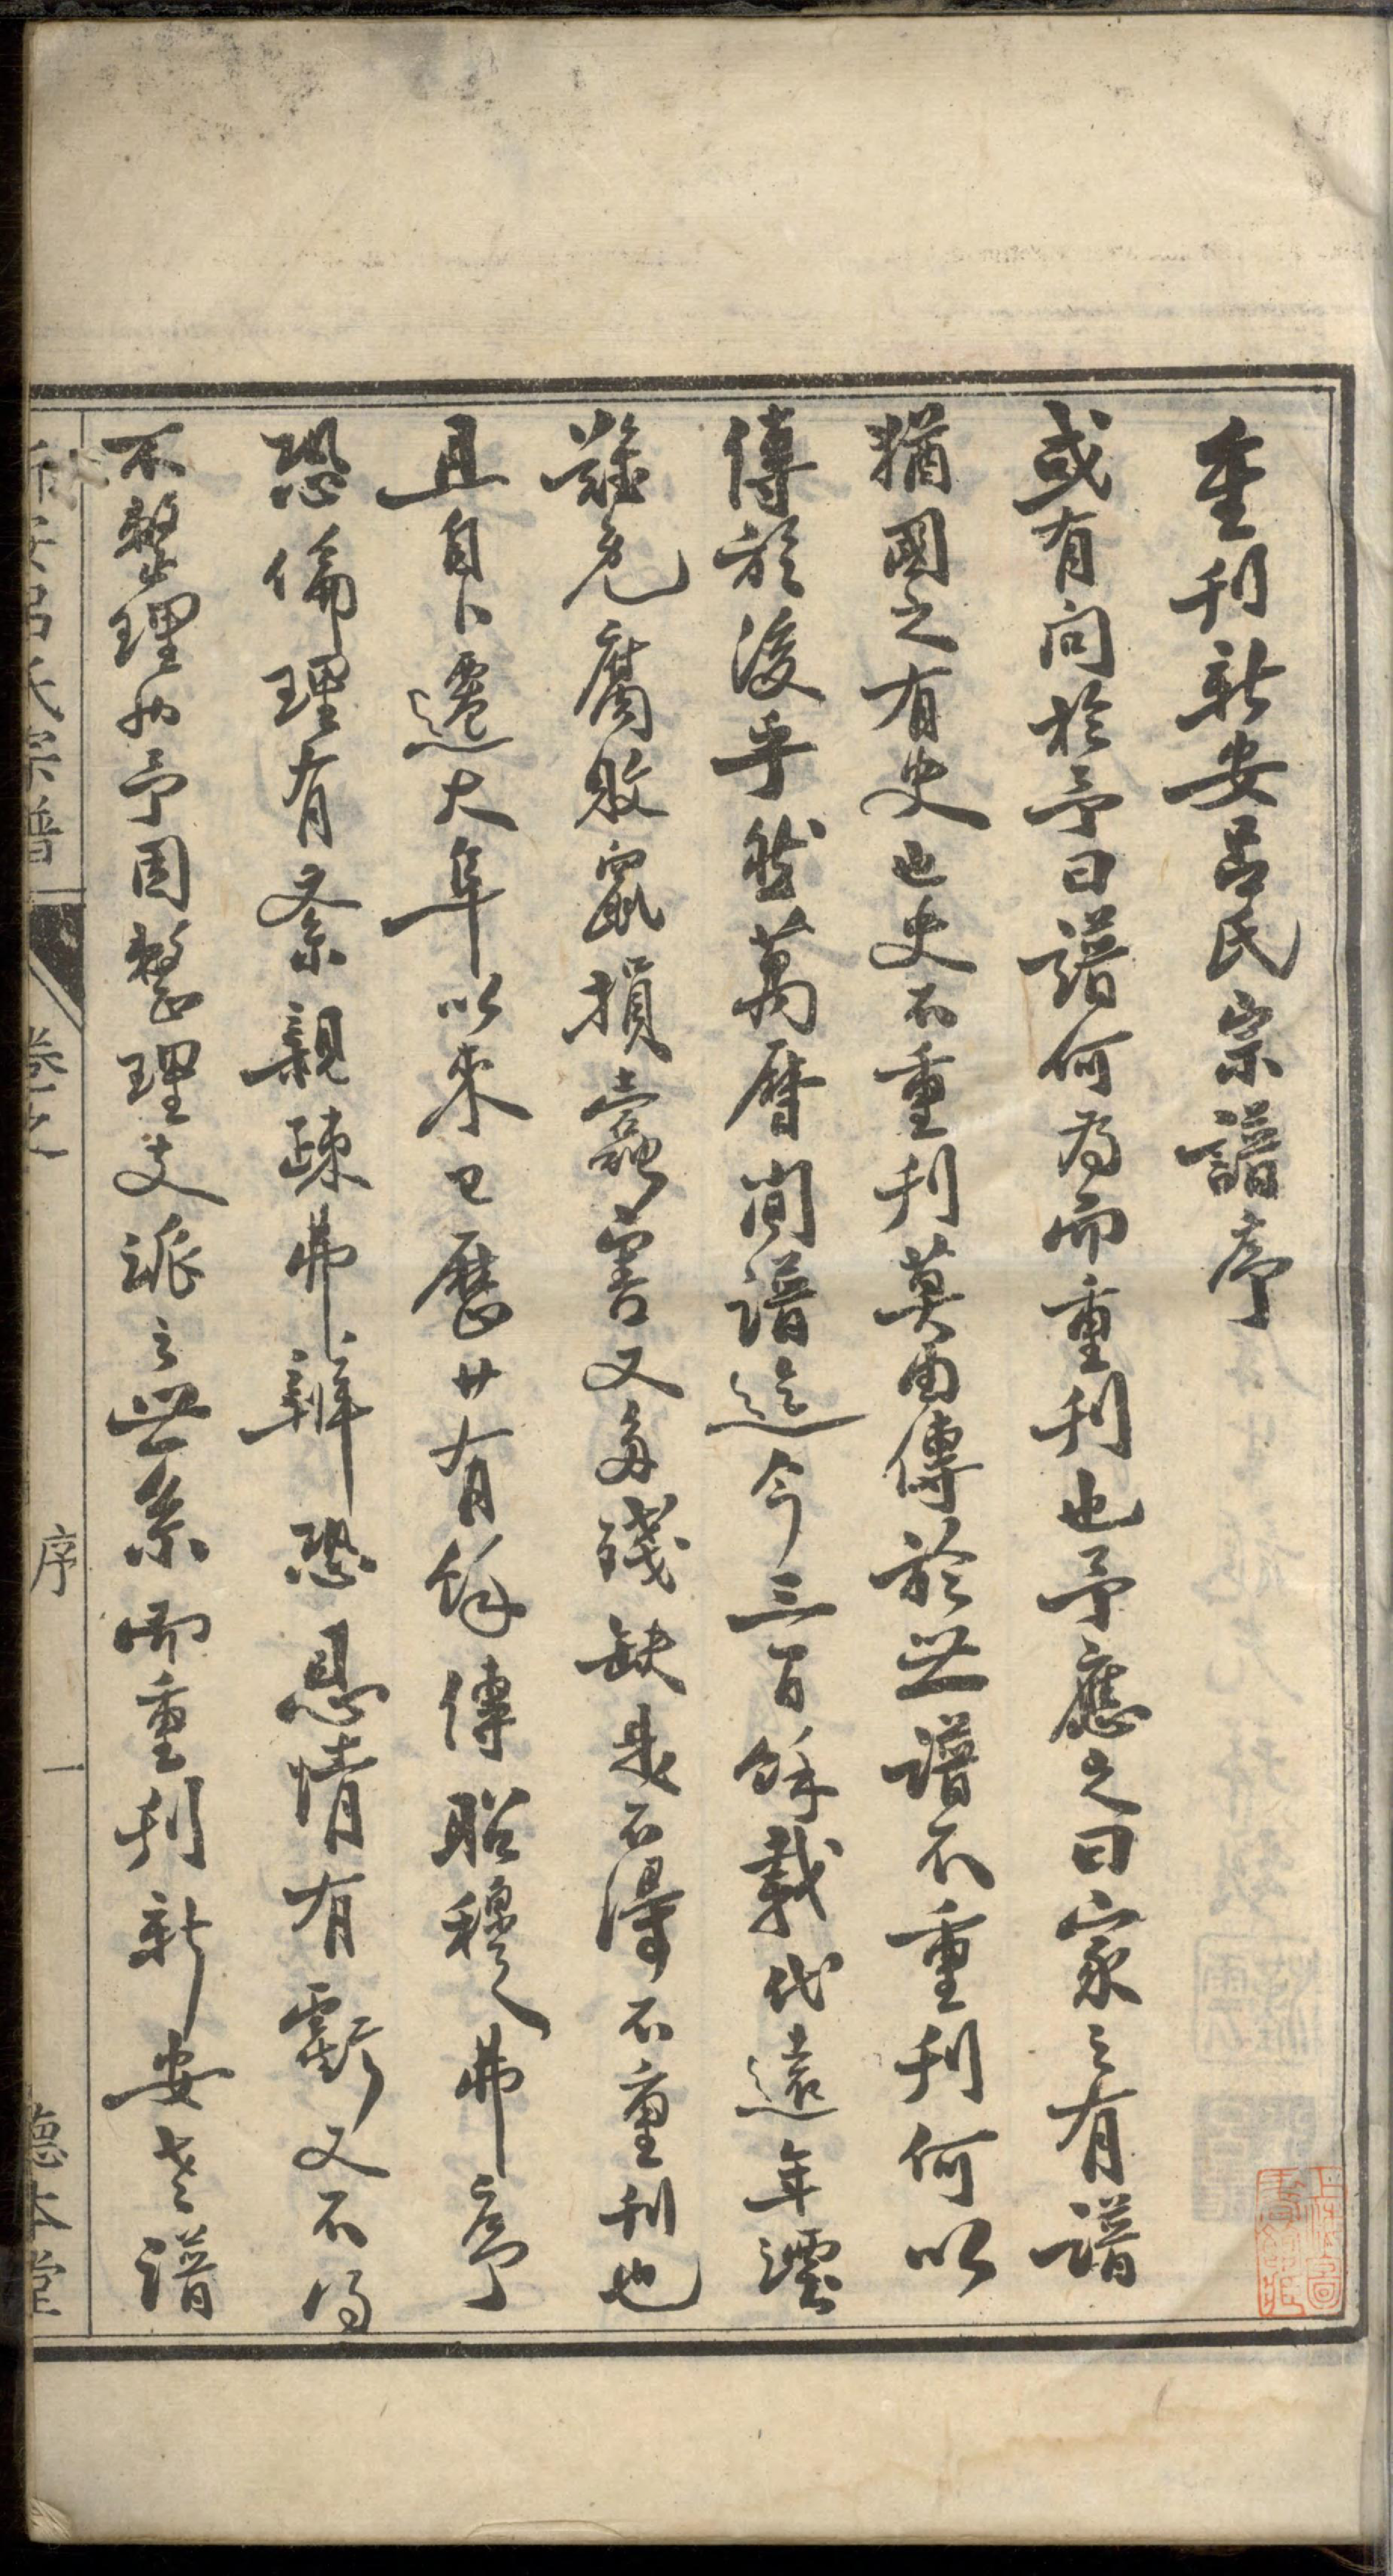 重刊新安呂氏宗譜序
或有问於予曰譜何為而重刊也予應之曰家之有譜
猶國之有史也史不重刊莫由傳於世譜不重刊何以
傳於後乎然萬曆间譜迄今三百餘載代遠年湮
難免腐敗鼠損蠹害又多殘缺是不得不重刊也
且自卜遷大阜以來已歷廿有餘傳昭穆弗序
恐倫理有紊親疎弗辨恐恩情有虧又不得
不整理也予因整理支派之世系而重刊新安老譜
新安呂氏宗譜
卷之
序
一
德本堂